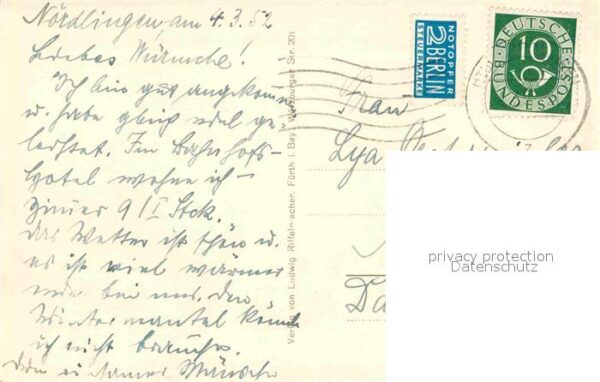 Nördlingen, am 4.3.52
Liebes Würmche!
Ich bin gut angekommen
u. habe gleich viel ge-
Im Bahnhofs-
hotel wohne ich -
Zimmer 9/I Stck.
Das Wetter ist schön u.
es ist viel wärmer
wie bei uns. Den
Wintermantel könnte
ich nicht brauchen.
Dein einsames
Verlag von Ludwig Riffelmacher, Fürth i. Bay., Würzburger Str. 20
NOTOPFER
2 BERLIN
STEUERMARKE
DEUTSCHE
BUNDESPOST
10
Frau
Lya
Da
privacy protection
Datenschutz